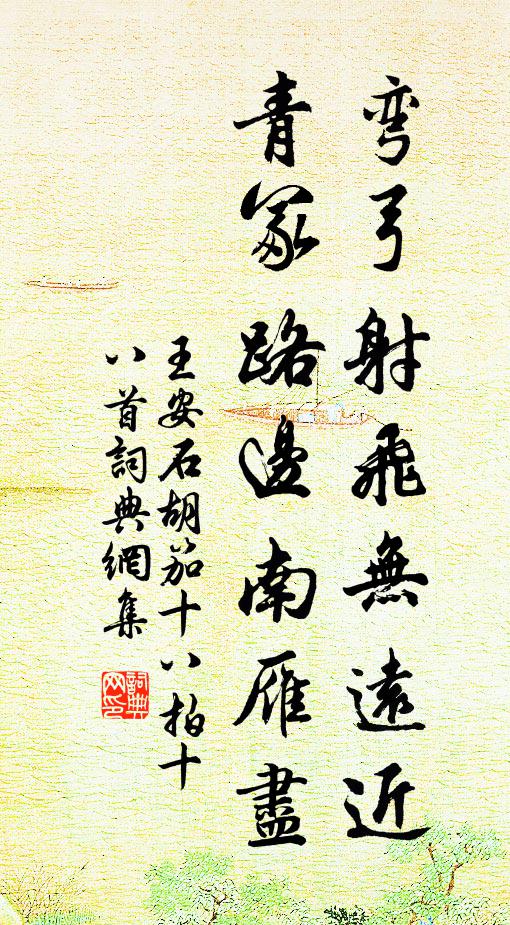 弯弓射飛無遠近
青冢路邊南雁盡
王安石胡笳十八拍十
八首詞典網集
詞典网印